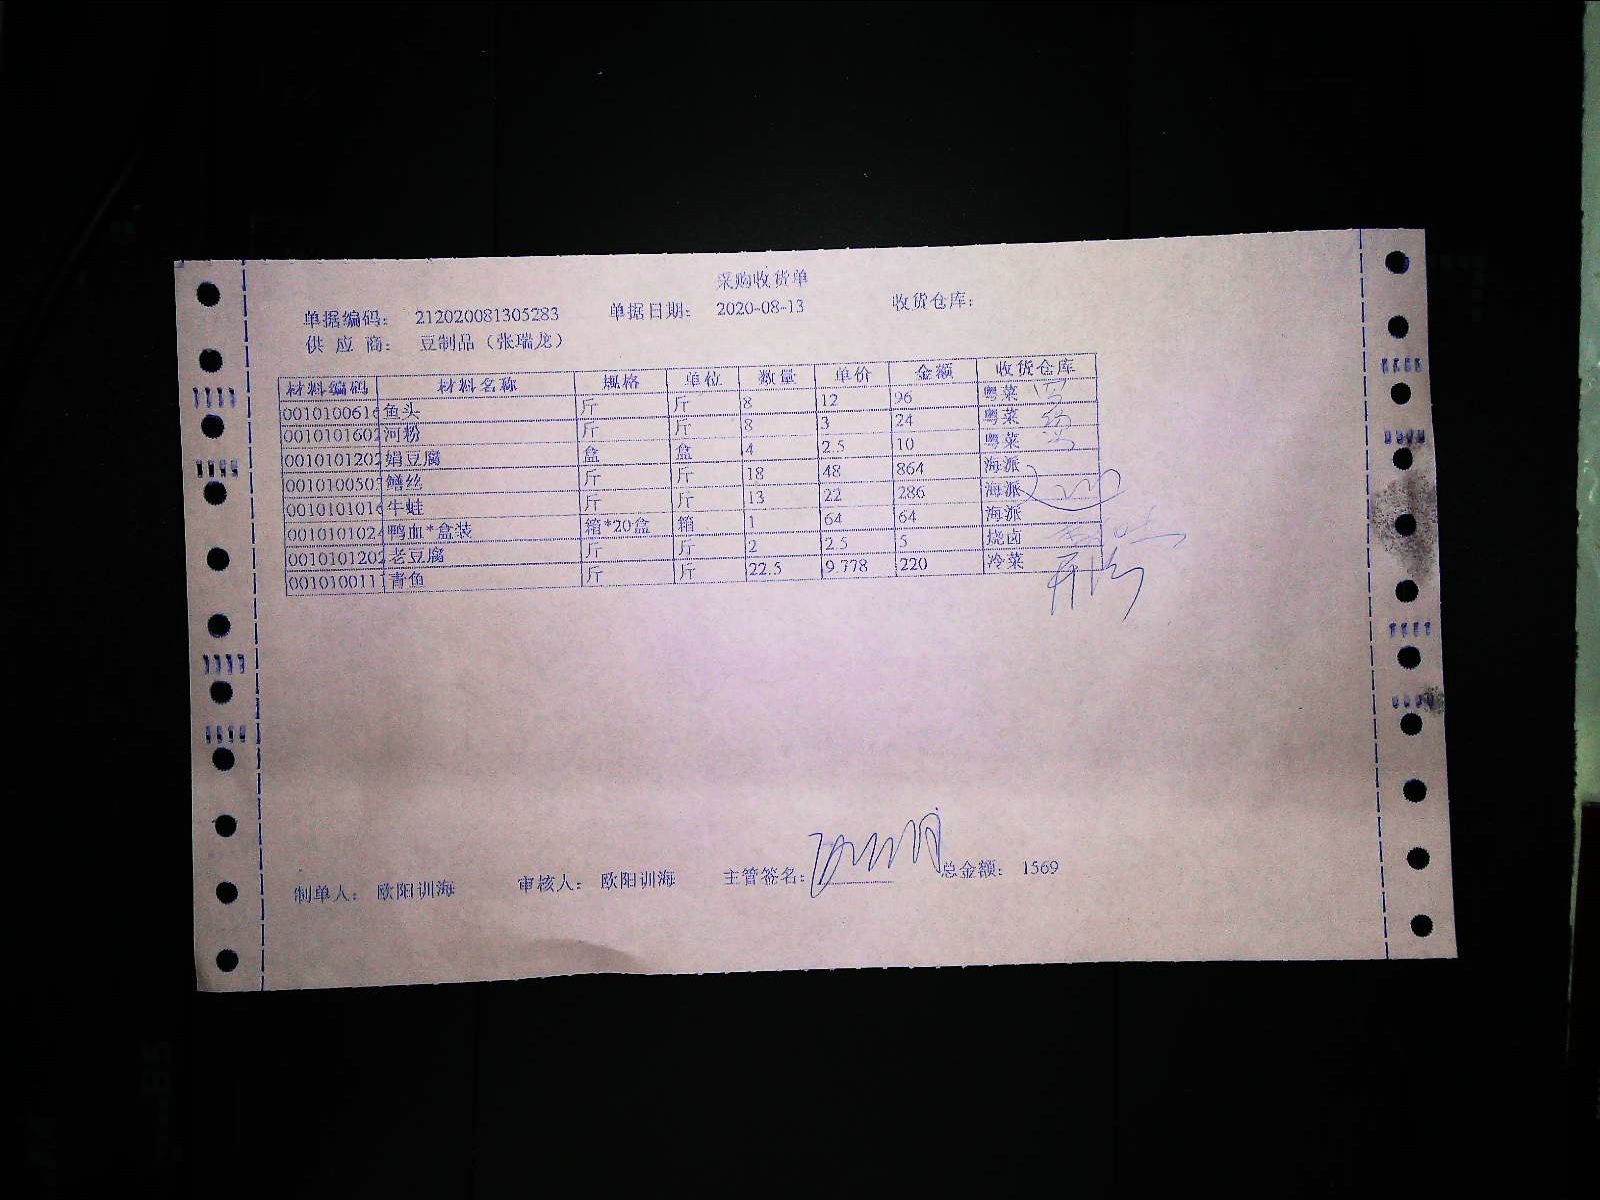 采购收货单
单据编码: 212020081305283 单据日期: 2020-08-13 收货仓库:
供 应 商: 豆制品（张瑞龙）
材料编码 材料名称 规格 单位 数量 单价 金额 收货仓库
001010061 鱼头 斤 斤 8 12 96 粤菜
001010160 河粉 斤 斤 8 3 24 粤菜
001010120 娟豆腐 盒 盒 4 2.5 10 粤菜
001010050 鳝丝 斤 斤 18 48 864 海派
001010101 牛蛙 斤 斤 13 22 286 海派
001010102 鸭血*盒装 箱*20盒 箱 1 64 64 海派
001010120 老豆腐 斤 斤 2 2.5 5 烧卤
001010011 青鱼 斤 斤 22.5 9.778 220 冷菜
制单人: 欧阳训海 审核人: 欧阳训海 主管签名: 总金额: 1569